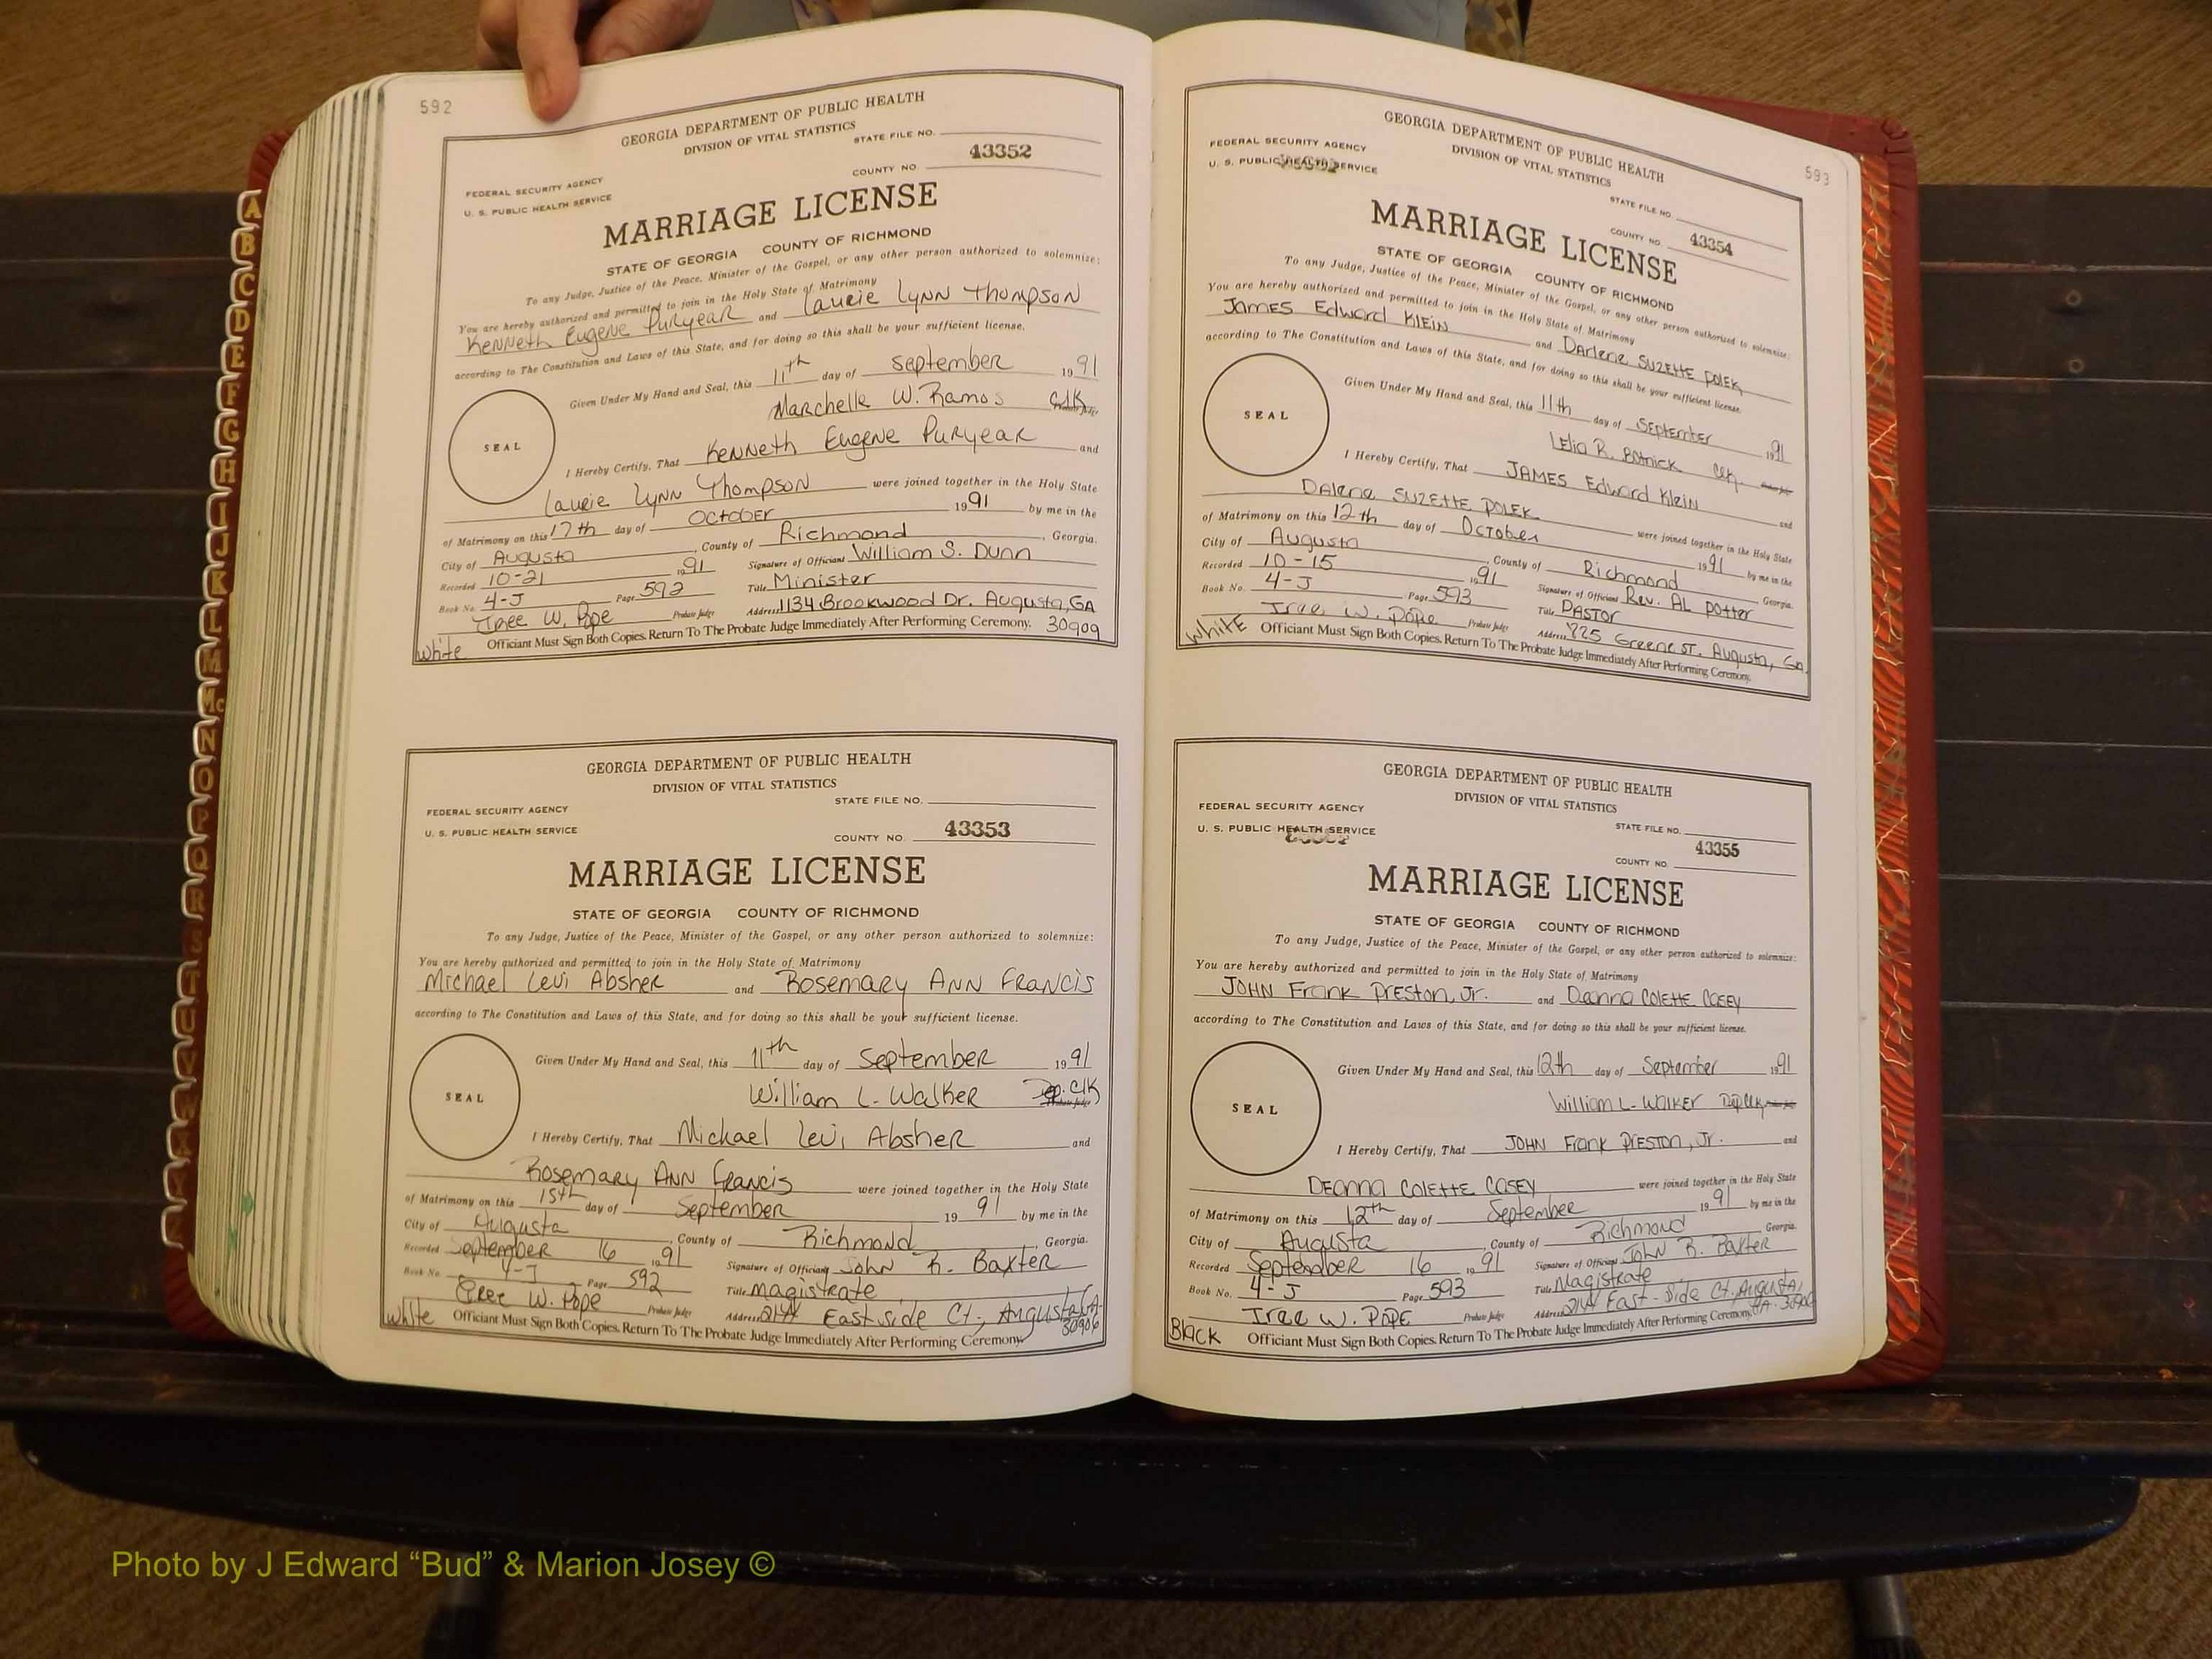 592
GEORGIA DEPARTMENT OF PUBLIC HEALTH
DIVISION OF VITAL STATISTICS
STATE FILE NO.
COUNTY NO 43352
FEDERAL SECURITY AGENCY
U. S. PUBLIC HEALTH SERVICE
MARRIAGE LICENSE
STATE OF GEORGIA COUNTY OF RICHMOND
To any Judge, Justice of the Peace, Minister of the Gospel, or any other person authorized to solemnize:
You are hereby authorized and permitted to join in the Holy State of Matrimony
Kenneth Eugene Puryear and Laurie Lynn Thompson
according to The Constitution and Laws of this State, and for doing so this shall be your sufficient license.
Given Under My Hand and Seal, this 11th day of September 1991
Marchelle W. Ramos Clk
SEAL
I Hereby Certify, That Kenneth Eugene Puryear and
Laurie Lynn Thompson were joined together in the Holy State
of Matrimony on this 17th day of October 1991 by me in the
City of Augusta, County of Richmond, Georgia.
Recorded 10-21 1991 Signature of Officiant William S. Dunn
Book No. 4-J Page 592 Title Minister
Tree W. Pope Probate Judge Address 1134 Brookwood Dr. Augusta, GA
White Officiant Must Sign Both Copies. Return To The Probate Judge Immediately After Performing Ceremony. 30909
GEORGIA DEPARTMENT OF PUBLIC HEALTH
DIVISION OF VITAL STATISTICS
STATE FILE NO.
FEDERAL SECURITY AGENCY
U. S. PUBLIC HEALTH SERVICE
COUNTY NO. 43353
MARRIAGE LICENSE
STATE OF GEORGIA COUNTY OF RICHMOND
To any Judge, Justice of the Peace, Minister of the Gospel, or any other person authorized to solemnize:
You are hereby authorized and permitted to join in the Holy State of Matrimony
Michael Levi Absher and Rosemary Ann Francis
according to The Constitution and Laws of this State, and for doing so this shall be your sufficient license.
Given Under My Hand and Seal, this 11th day of September 1991
William L. Walker Dep. Clk
SEAL
I Hereby Certify, That Michael Levi Absher and
Rosemary Ann Francis were joined together in the Holy State
of Matrimony on this 15th day of September 1991 by me in the
City of Augusta, County of Richmond, Georgia.
Recorded September 16 1991 Signature of Officiant John R. Baxter
Book No. 4-J Page 592 Title Magistrate
Tree W. Pope Probate Judge Address East side Ct., Augusta GA
White Officiant Must Sign Both Copies. Return To The Probate Judge Immediately After Performing Ceremony. 30906
593
GEORGIA DEPARTMENT OF PUBLIC HEALTH
DIVISION OF VITAL STATISTICS
FEDERAL SECURITY AGENCY
U. S. PUBLIC HEALTH SERVICE
STATE FILE NO.
COUNTY NO. 43354
MARRIAGE LICENSE
STATE OF GEORGIA COUNTY OF RICHMOND
To any Judge, Justice of the Peace, Minister of the Gospel, or any other person authorized to solemnize:
You are hereby authorized and permitted to join in the Holy State of Matrimony
James Edward Klein and Darlene Suzette Polek
according to The Constitution and Laws of this State, and for doing so this shall be your sufficient license.
Given Under My Hand and Seal, this 11th day of September 1991
Lelia R. Botnick Clk.
SEAL
I Hereby Certify, That James Edward Klein and
Dalene Suzette Polek were joined together in the Holy State
of Matrimony on this 12th day of October 1991 by me in the
City of Augusta, County of Richmond Georgia.
Recorded 10-15 1991 Signature of Officiant Rev. Al Potter
Book No. 4-J Page 593 Title Pastor
Tree W. Pope Probate Judge Address 825 Greene St. Augusta, Ga.
White Officiant Must Sign Both Copies. Return To The Probate Judge Immediately After Performing Ceremony.
GEORGIA DEPARTMENT OF PUBLIC HEALTH
DIVISION OF VITAL STATISTICS
FEDERAL SECURITY AGENCY
U. S. PUBLIC HEALTH SERVICE
STATE FILE NO.
COUNTY NO. 43355
MARRIAGE LICENSE
STATE OF GEORGIA COUNTY OF RICHMOND
To any Judge, Justice of the Peace, Minister of the Gospel, or any other person authorized to solemnize:
You are hereby authorized and permitted to join in the Holy State of Matrimony
John Frank Preston, Jr. and Deanna Colette Casey
according to The Constitution and Laws of this State, and for doing so this shall be your sufficient license.
Given Under My Hand and Seal, this 12th day of September 1991
William L. Walker Dep Clk
SEAL
I Hereby Certify, That John Frank Preston, Jr. and
Deanna Colette Casey were joined together in the Holy State
of Matrimony on this 12th day of September 1991 by me in the
City of Augusta, County of Richmond Georgia.
Recorded September 16 1991 Signature of Officiant John R. Baxter
Book No. 4-J Page 593 Title Magistrate
Tree W. Pope Probate Judge Address East-Side Ct. Augusta, GA. 30906
Black Officiant Must Sign Both Copies. Return To The Probate Judge Immediately After Performing Ceremony.
A
B
C
D
E
F
G
H
I
J
K
L
M
Mc
N
O
P
Q
R
S
T
U
V
Photo by J Edward “Bud” & Marion Josey ©